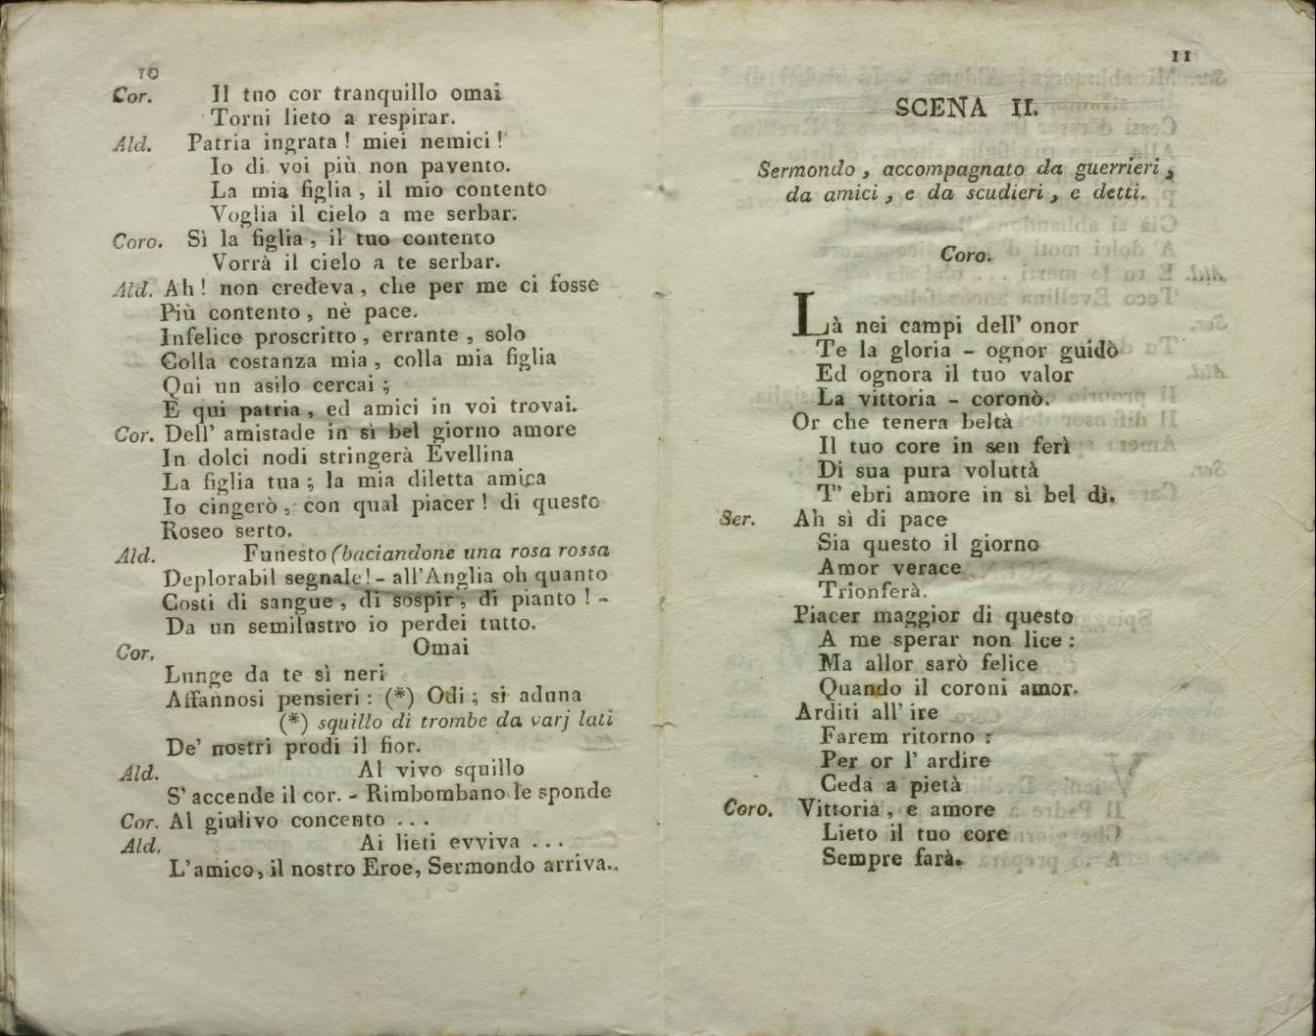 10
Cor. Il tuo cor tranquillo omai
Torni lieto a respirar.
Ald. Patria ingrata ! miei nemici !
Io di voi più non pavento.
La mia figlia , il mio contento
Voglia il cielo a me serbar.
Coro. Sì la figlia , il tuo contento
Vorrà il cielo a te serbar.
Ald. Ah ! non credeva , che per me ci fosse
Più contento , nè pace.
Infelice proscritto , errante , solo
Colla costanza mia , colla mia figlia
Qui un asilo cercai ;
E qui patria , ed amici in voi trovai.
Cor. Dell' amistade in sì bel giorno amore
In dolci nodi stringerà Evellina
La figlia tua ; la mia diletta amica
Io cingerò , con qual piacer ! di questo
Roseo serto.
Ald. Funesto (baciandone una rosa rossa
Deplorabil segnale! - all'Anglia oh quanto
Costi di sangue , di sospir , di pianto ! -
Da un semilustro io perdei tutto.
Cor. Omai
Lunge da te sì neri
Affannosi pensieri : (*) Odi ; si aduna
(*) squillo di trombe da varj lati
De' nostri prodi il fior.
Ald. Al vivo squillo
S' accende il cor. - Rimbombano le sponde
Cor. Al giulivo concento ...
Ald. Ai lieti evviva ...
L'amico, il nostro Eroe, Sermondo arriva..
11
SCENA II.
Sermondo , accompagnato da guerrieri ,
da amici , e da scudieri , e detti.
Coro.
Là nei campi dell' onor
Te la gloria - ognor guidò
Ed ognora il tuo valor
La vittoria - coronò.
Or che tenera beltà
Il tuo core in sen ferì
Di sua pura voluttà
T' ebri amore in sì bel dì.
Ser. Ah sì di pace
Sia questo il giorno
Amor verace
Trionferà.
Piacer maggior di questo
A me sperar non lice :
Ma allor sarò felice
Quando il coroni amor.
Arditi all' ire
Farem ritorno :
Per or l' ardire
Ceda a pietà
Coro. Vittoria , e amore
Lieto il tuo core
Sempre farà.